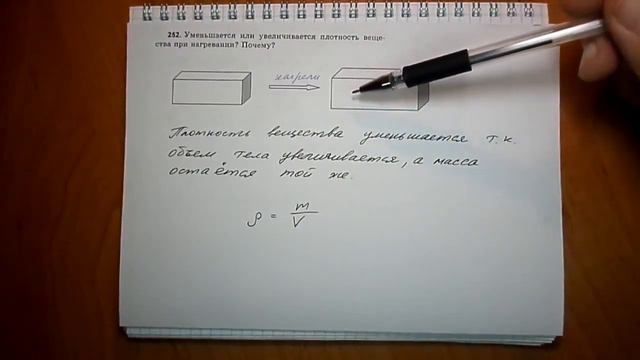 252. Уменьшается или увеличивается плотность веще-
ства при нагревании? Почему?
нагрели
Плотность вещества уменьшается т.к.
объем тела увеличивается, а масса
остаётся той же.
ρ = m/V